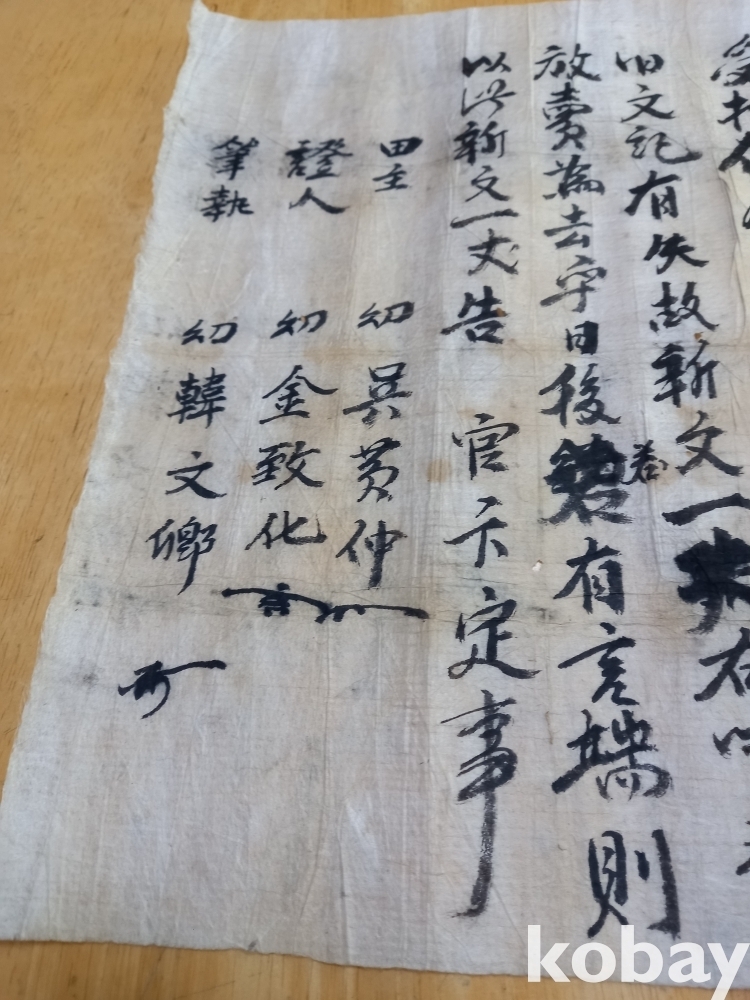 受
旧文記有失故新文一 右
放賣爲去乎日後若有言端則
以此新文一丈告 官卞定事
田主 幼 吳 仲
證人 幼 金致化
筆執 幼 韓文鄉
kobay